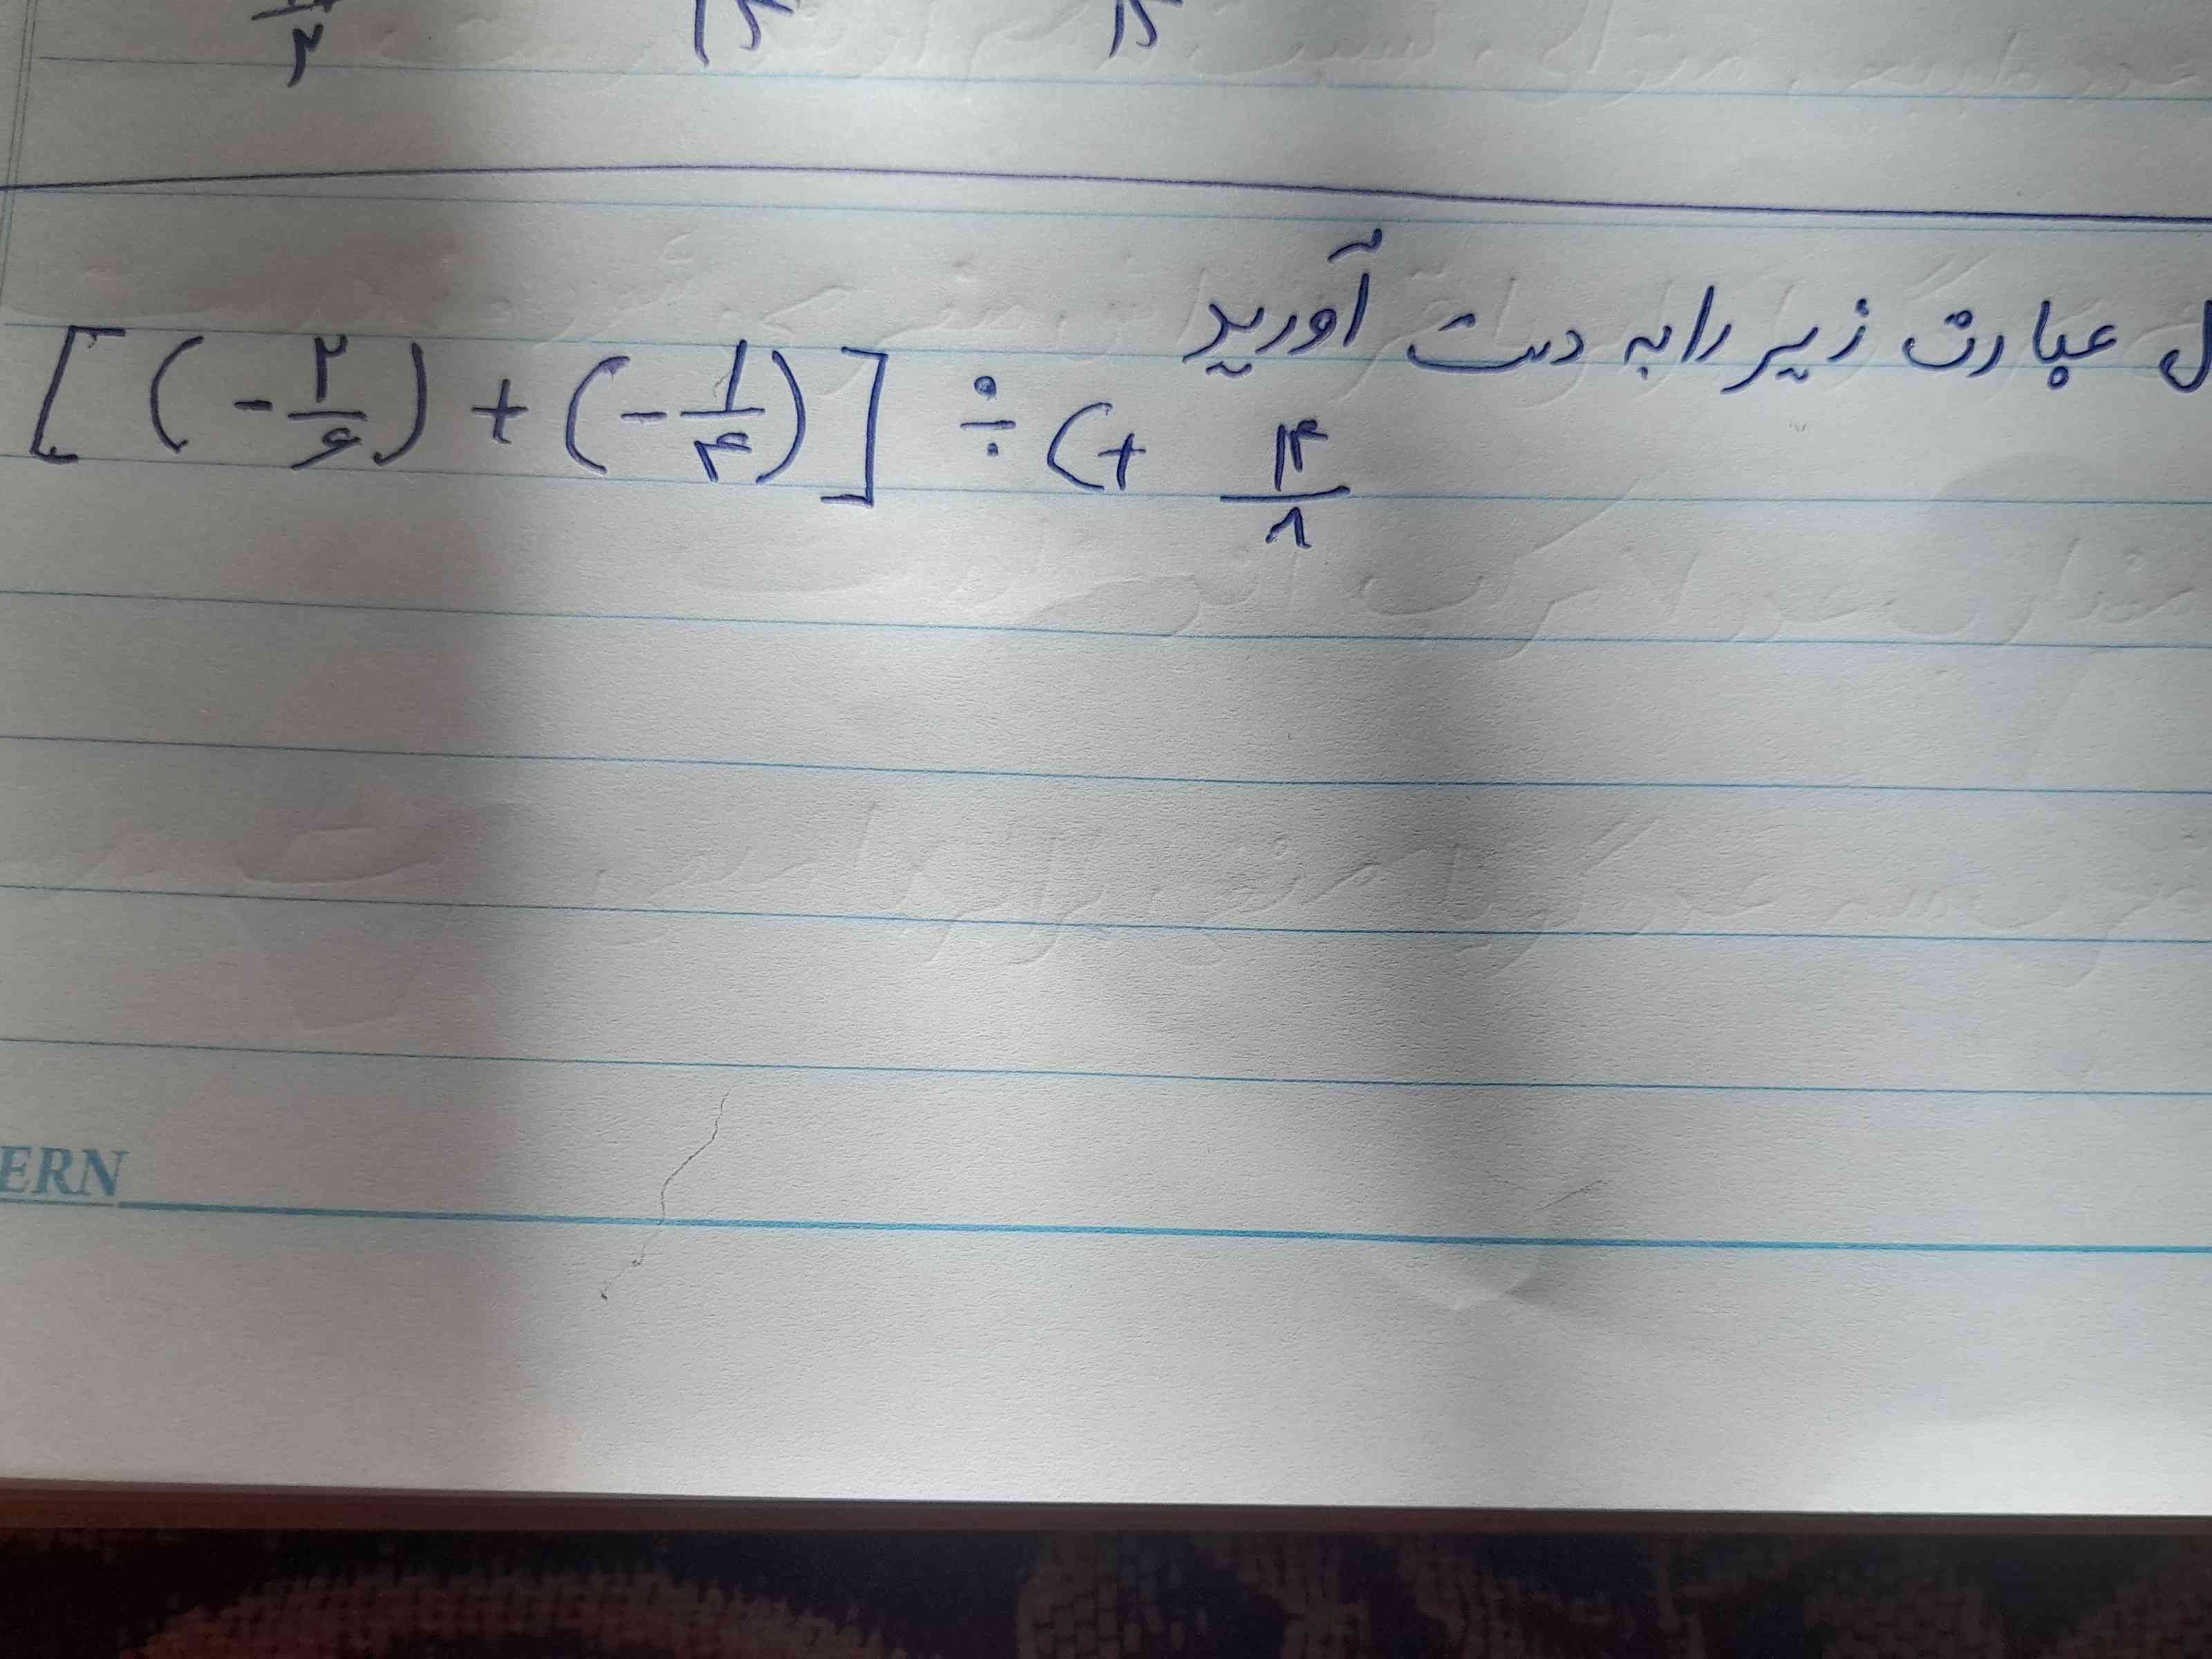 ۲ ۱۵ ۱۵
ل عبارت زیر را به دست آورید
[(-۲/۶) + (-۱/۴)] ÷ (+ ۱۴/۸
ERN